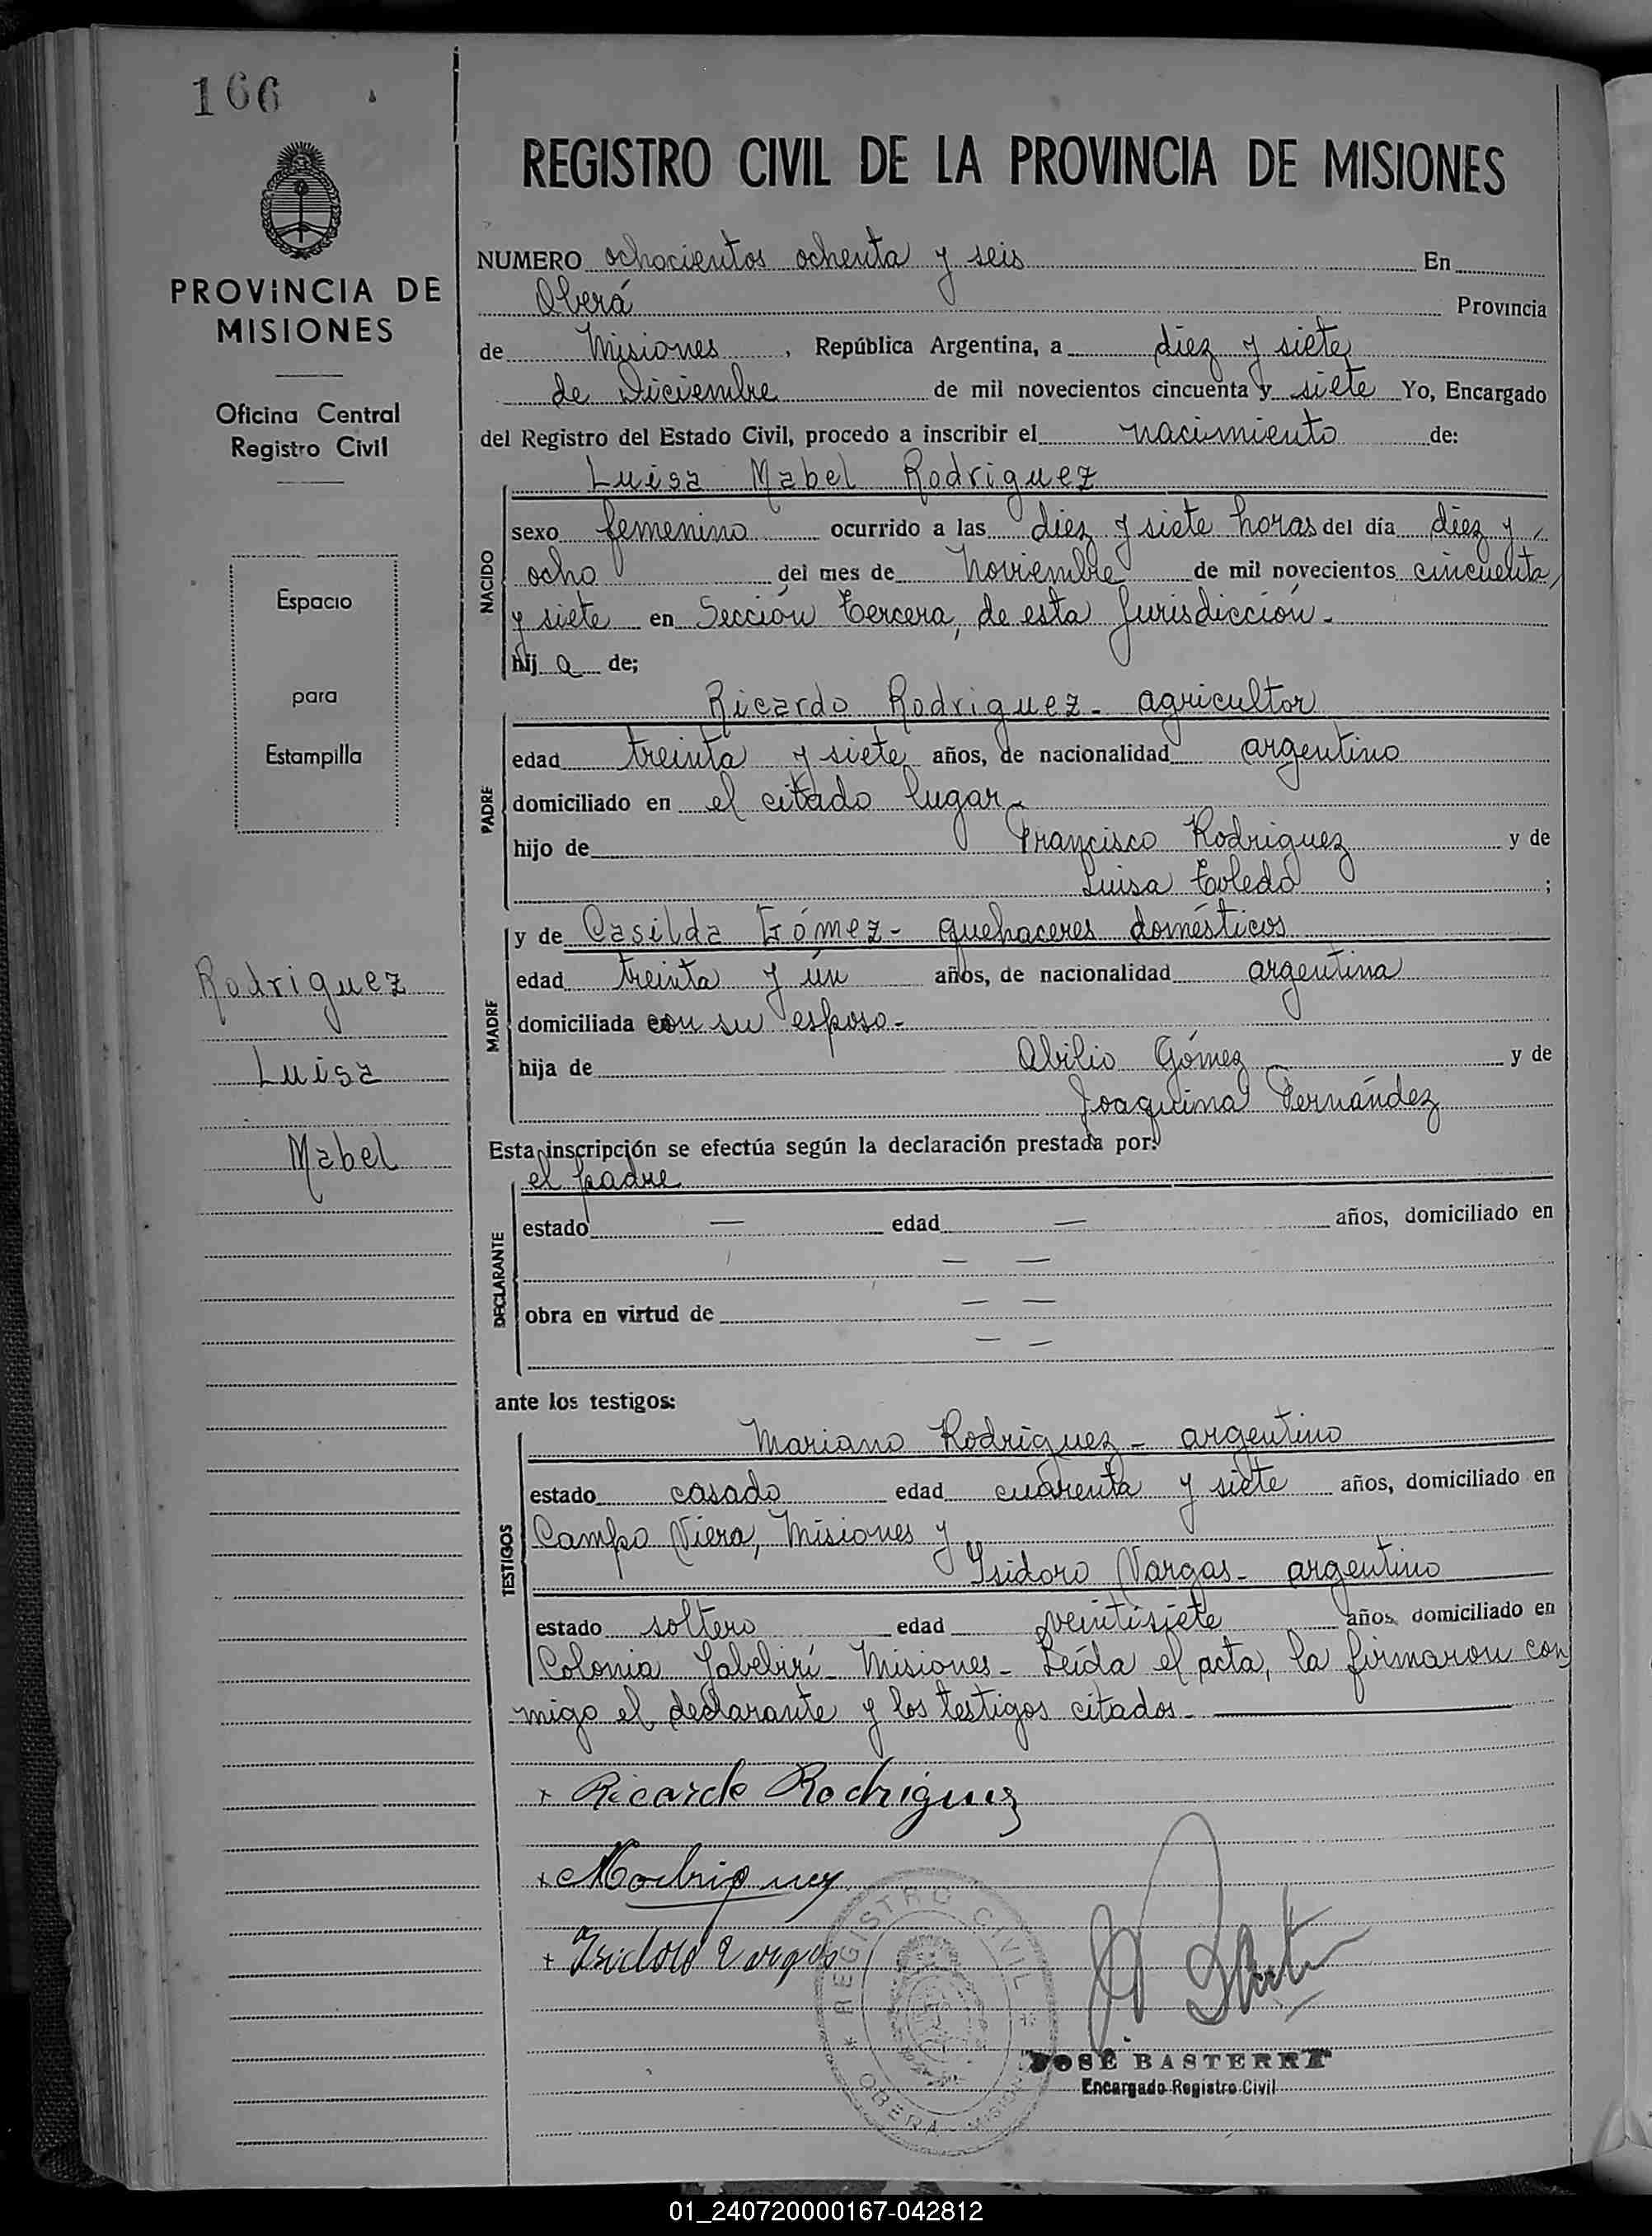 166
PROVINCIA DE
MISIONES
Oficina Central
Registro Civil
Espacio
para
Estampilla
Rodriguez
Luisa
Mabel
REGISTRO CIVIL DE LA PROVINCIA DE MISIONES
NUMERO ochocientos ochenta y seis En
Oberá Provincia
de Misiones, República Argentina, a diez y siete
de Diciembre de mil novecientos cincuenta y siete Yo, Encargado
del Registro del Estado Civil, procedo a inscribir el nacimiento de:
Luisa Mabel Rodriguez
NACIDO
sexo femenino ocurrido a las diez y siete horas del día diez y
ocho del mes de Noviembre de mil novecientos cincuenta
y siete en Sección Tercera, de esta Jurisdicción.
hij a de;
Ricardo Rodriguez - agricultor
PADRE
edad treinta y siete años, de nacionalidad argentino
domiciliado en el citado lugar -
hijo de Francisco Rodriguez y de
Luisa Toledo ;
y de Casilda Gómez - quehaceres domésticos
MADRE
edad treinta y ún años, de nacionalidad argentina
domiciliada con su esposo -
hija de Abilio Gómez y de
Joaquina Fernández
Esta inscripción se efectúa según la declaración prestada por:
el padre
DECLARANTE
estado — edad — años, domiciliado en
— —
obra en virtud de — —
— —
ante los testigos:
Mariano Rodriguez - argentino
TESTIGOS
estado casado edad cuarenta y siete años, domiciliado en
Campo Viera, Misiones y
Isidoro Vargas - argentino
estado soltero edad veintisiete años, domiciliado en
Colonia Yabebirí - Misiones - Leída el acta, la firmaron con
migo el declarante y los testigos citados -
+ Ricardo Rodriguez
+ MRodriguez
+ Isidoro Vargas
REGISTRO CIVIL
OBERA MISIONES
JOSÉ BASTERRA
Encargado Registro Civil
01_240720000167-042812